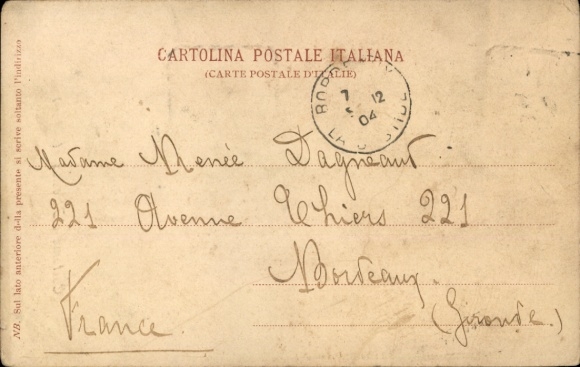 CARTOLINA POSTALE ITALIANA
(CARTE POSTALE D'ITALIE)
7 12
04
Madame Renée Dagneaut
221 Avenue Thiers 221
Bordeaux.
(Gironde.)
France.
NB. Sul lato anteriore della presente si scrive soltanto l'indirizzo